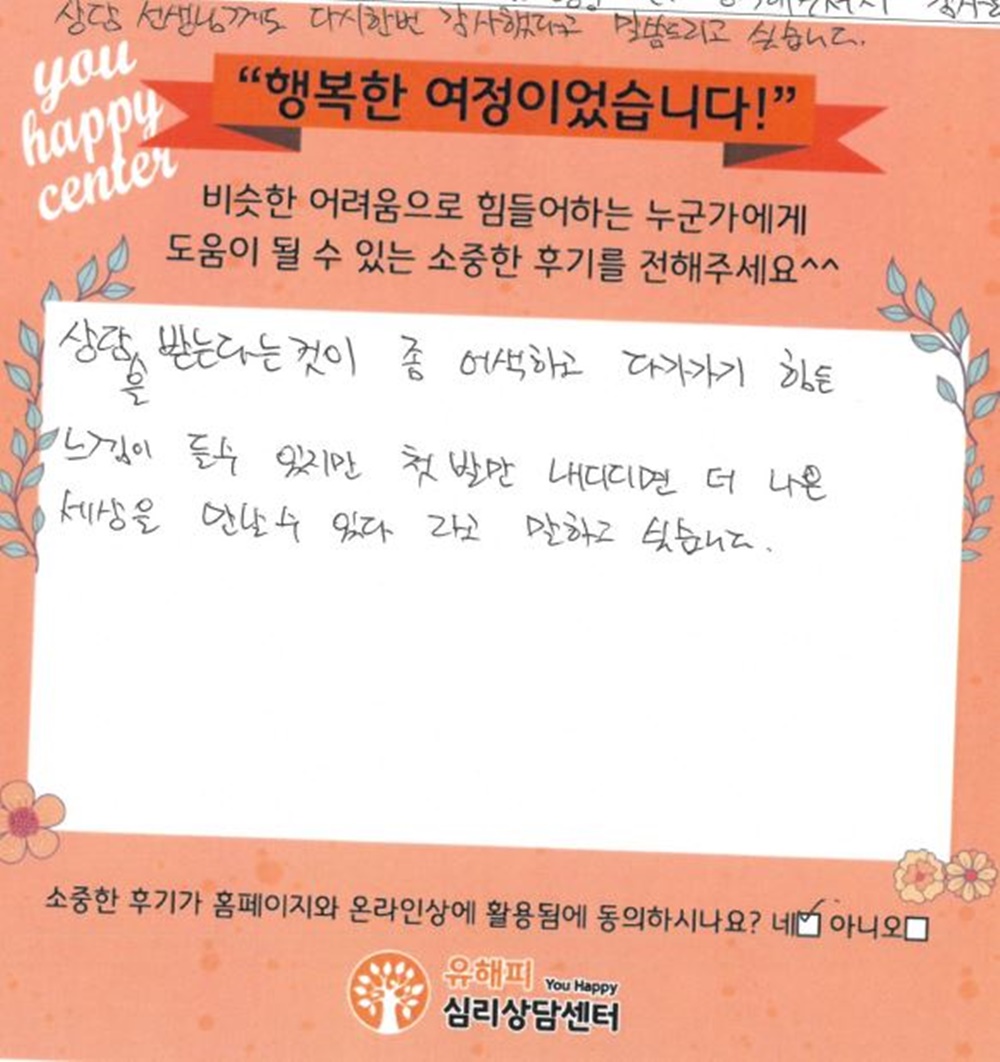 상담 선생님께도 다시한번 감사했다고 말씀드리고 싶습니다.
you
happy
center
“행복한 여정이었습니다!”
비슷한 어려움으로 힘들어하는 누군가에게
도움이 될 수 있는 소중한 후기를 전해주세요^^
상담을 받는다는것이 좀 어색하고 다가가기 힘든
느낌이 들수 있지만 첫발만 내디디면 더 나은
세상을 만날수 있다 라고 말하고 싶습니다.
소중한 후기가 홈페이지와 온라인상에 활용됨에 동의하시나요? 네☑ 아니오☐
유해피 You Happy
심리상담센터